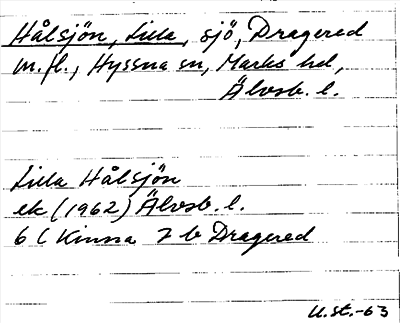 Hålsjön, Lilla, sjö, Dragered
m.fl., Hyssna sn, Marks hd,
Älvsb. l.
Lilla Hålsjön
ek (1962) Älvsb. l.
6 C Kinna 7 b Dragered
U.st.-63